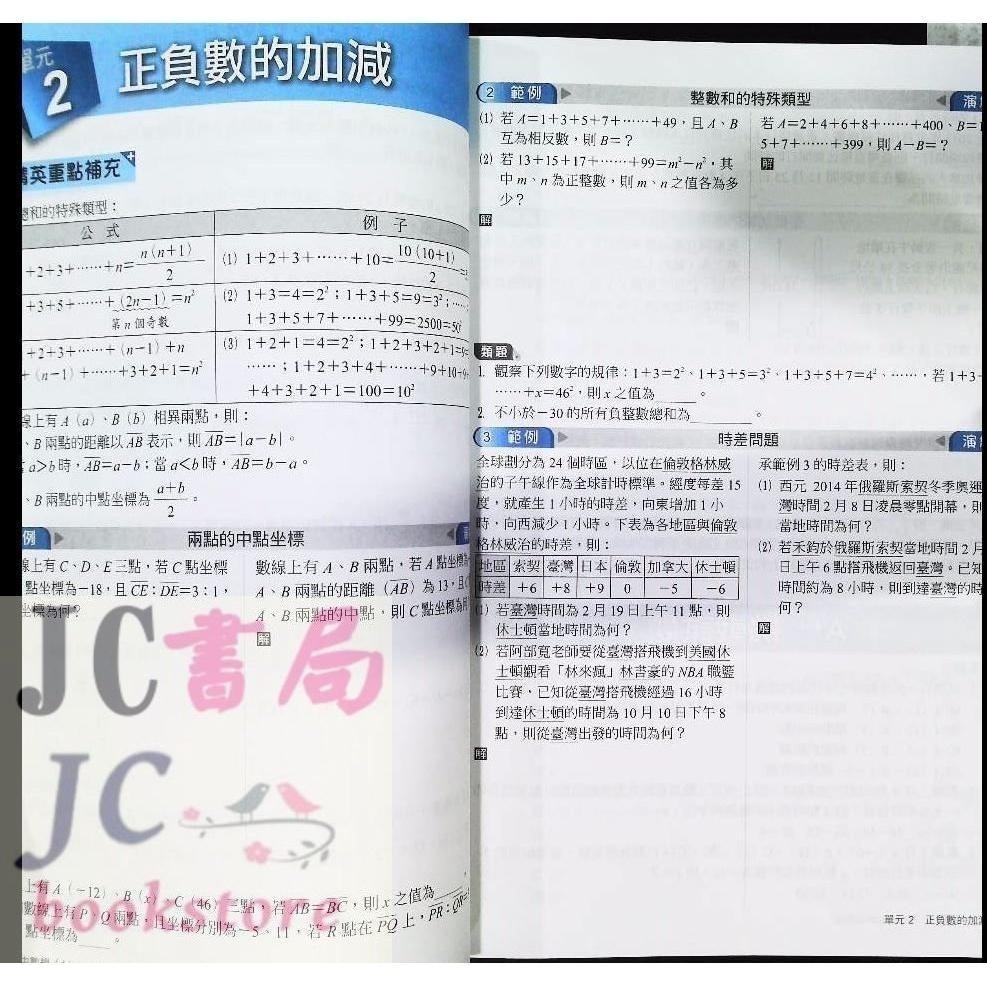 單元
2
正負數的加減
菁英重點補充
總和的特殊類型：
公式 例子
+2+3+……+n=n(n+1)/2 (1) 1+2+3+……+10=10(10+1)/2
+3+5+……+(2n-1)=n² (2) 1+3=4=2²；1+3+5=9=3²；……
第n個奇數 1+3+5+7+……+99=2500=50²
+2+3+……+(n-1)+n (3) 1+2+1=4=2²；1+2+3+2+1=9=
+(n-1)+……+3+2+1=n² ……；1+2+3+4+……+9+10+9+
+4+3+2+1=100=10²
線上有A(a)、B(b)相異兩點，則：
、B兩點的距離以AB表示，則AB=|a-b|。
a>b時，AB=a-b；當a<b時，AB=b-a。
、B兩點的中點坐標為a+b/2。
例 兩點的中點坐標
線上有C、D、E三點，若C點坐標
點坐標為-18，且CE：DE=3：1，
坐標為何？
數線上有A、B兩點，若A點坐標
A、B兩點的距離（AB）為13，且
A、B兩點的中點，則C點坐標為
解
上有A(-12)、B(x)、C(46)三點，若AB=BC，則x之值為
數線上有P、Q兩點，且坐標分別為-5、11，若R點在PQ上，PR：QR=
點坐標為 。
2 範例 整數和的特殊類型 演
(1) 若A=1+3+5+7+……+49，且A、B
互為相反數，則B=？
(2) 若13+15+17+……+99=m²-n²，其
中m、n為正整數，則m、n之值各為多
少？
解
若A=2+4+6+8+……+400、B=1
5+7+……+399，則A-B=？
解
類題
1. 觀察下列數字的規律：1+3=2²、1+3+5=3²、1+3+5+7=4²、……，若1+3+
……+x=46²，則x之值為 。
2. 不小於-30的所有負整數總和為 。
3 範例 時差問題 演
全球劃分為24個時區，以位在倫敦格林威
治的子午線作為全球計時標準。經度每差15
度，就產生1小時的時差，向東增加1小
時，向西減少1小時。下表為各地區與倫敦
格林威治的時差，則：
地區 索契 臺灣 日本 倫敦 加拿大 休士頓
時差 +6 +8 +9 0 -5 -6
(1) 若臺灣時間為2月19日上午11點，則
休士頓當地時間為何？
(2) 若阿部寬老師要從臺灣搭飛機到美國休
士頓觀看「林來瘋」林書豪的NBA職籃
比賽，已知從臺灣搭飛機經過16小時
到達休士頓的時間為10月10日下午8
點，則從臺灣出發的時間為何？
解
承範例3的時差表，則：
(1) 西元2014年俄羅斯索契冬季奧運
灣時間2月8日凌晨零點開幕，則
當地時間為何？
(2) 若禾鈞於俄羅斯索契當地時間2月
日上午6點搭飛機返回臺灣。已知
時間約為8小時，則到達臺灣的時
何？
解
單元2 正負數的加減
JC書局
JC
bookstore